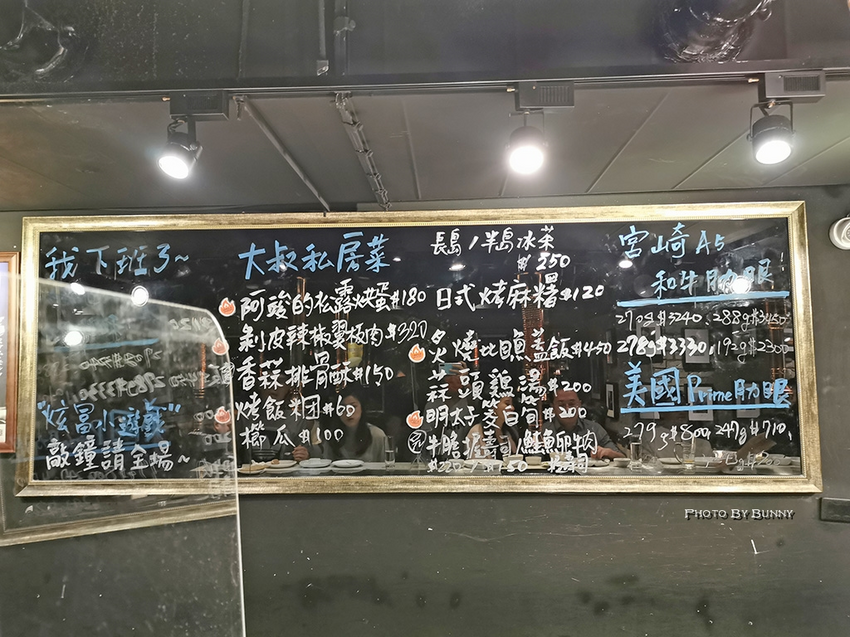 我下班了~
"炫富小遊戲"
敲鐘請全場~
大叔私房菜
阿駿的松露烘蛋$180
剝皮辣椒翼板肉$320
香蒜排骨酥$150
烤飯糰$60
櫛瓜$100
長島/半島冰茶
$250
日式烤麻糬$120
炙燒比目魚蓋飯$450
蒜頭雞湯$200
明太子筊白筍$200
宮崎A5
和牛肋眼!
270g$3240、288g$3450
278g$3330、192g$2300
美國Prime肋眼
279g$800、247g$710、
PHOTO BY BUNNY